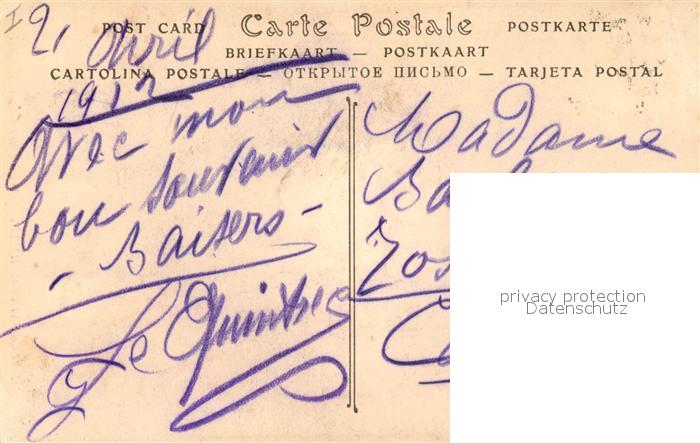 POST CARD Carte Postale POSTKARTE
BRIEFKAART — POSTKAART
CARTOLINA POSTALE — ОТКРЫТОЕ ПИСЬМО — TARJETA POSTAL
2, Avril
1912
Avec mon
bon souvenir
- Baisers -
Madame
privacy protection
Datenschutz